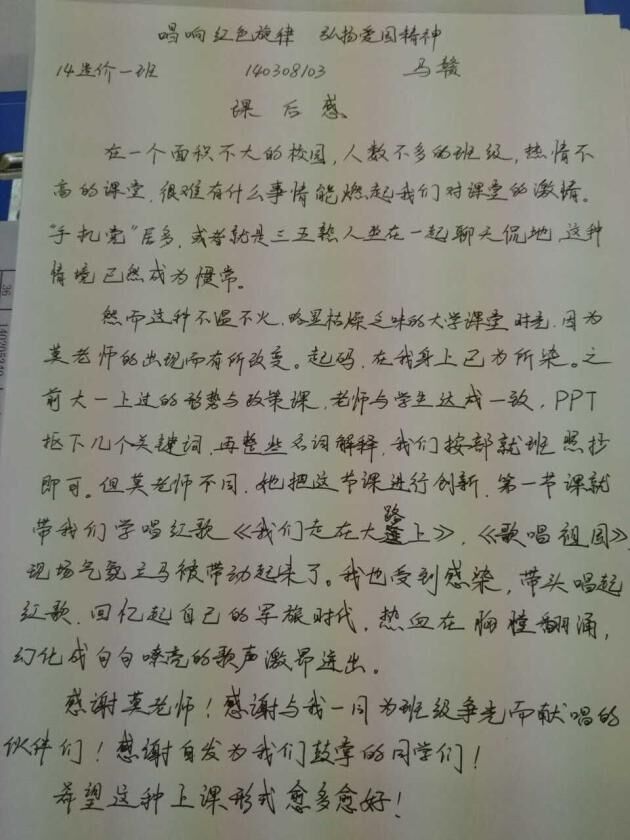 唱响红色旋律 弘扬爱国精神
14造价一班 140308103 马赣
课后感
在一个面积不大的校园,人数不多的班级,热情不
高的课堂,很难有什么事情能燃起我们对课堂的激情。
"手机党"居多,或者就是三五熟人坐在一起聊天侃地,这种
情境已然成为惯常。
然而这种不温不火、略显枯燥乏味的大学课堂时光,因为
莫老师的出现而有所改变。起码,在我身上已为所染。之
前大一上过的形势与政策课,老师与学生达成一致,PPT
抠下几个关键词,再整些名词解释,我们按部就班照抄
即可。但莫老师不同,她把这节课进行创新,第一节课就
带我们学唱红歌《我们走在大路上》,《歌唱祖国》,
现场气氛立马被带动起来了。我也受到感染,带头唱起
红歌,回忆起自己的军旅时代,热血在胸膛翻涌,
幻化成句句嘹亮的歌声激昂迸出。
感谢莫老师!感谢与我一同为班级争先而献唱的
伙伴们!感谢自发为我们鼓掌的同学们!
希望这种上课形式愈多愈好!
36